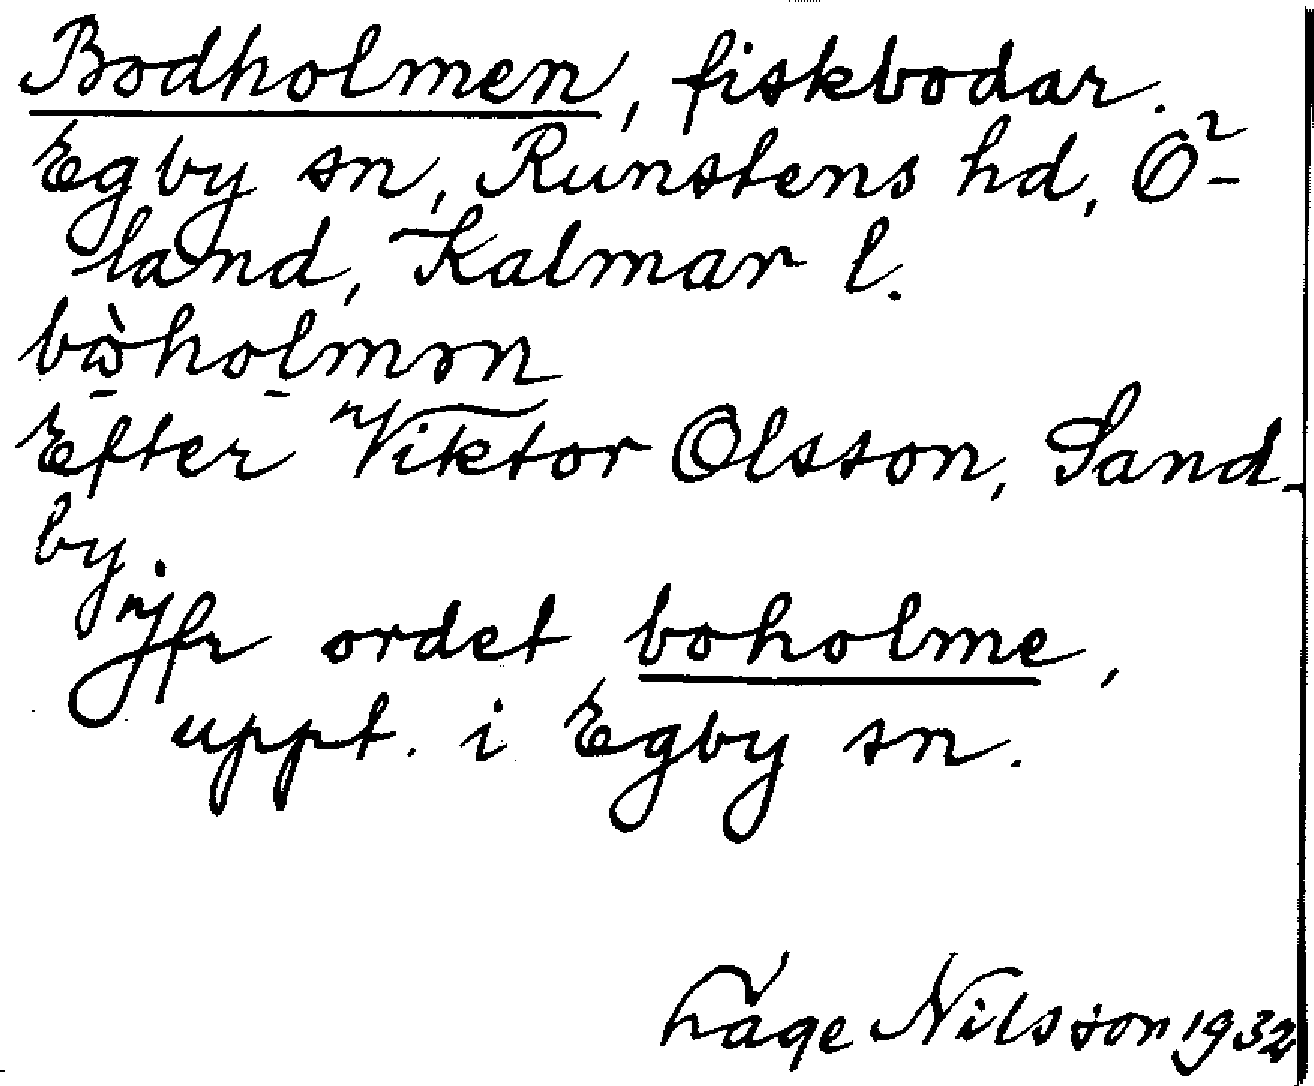 Bodholmen, fiskbodar.
Egby sn, Runstens hd, Ö-
land, Kalmar l.
bò̱ho̱lmən
Efter Viktor Olsson, Sand-
by.
Jfr ordet boholme,
uppt. i Egby sn.
Tage Nilsson 1932